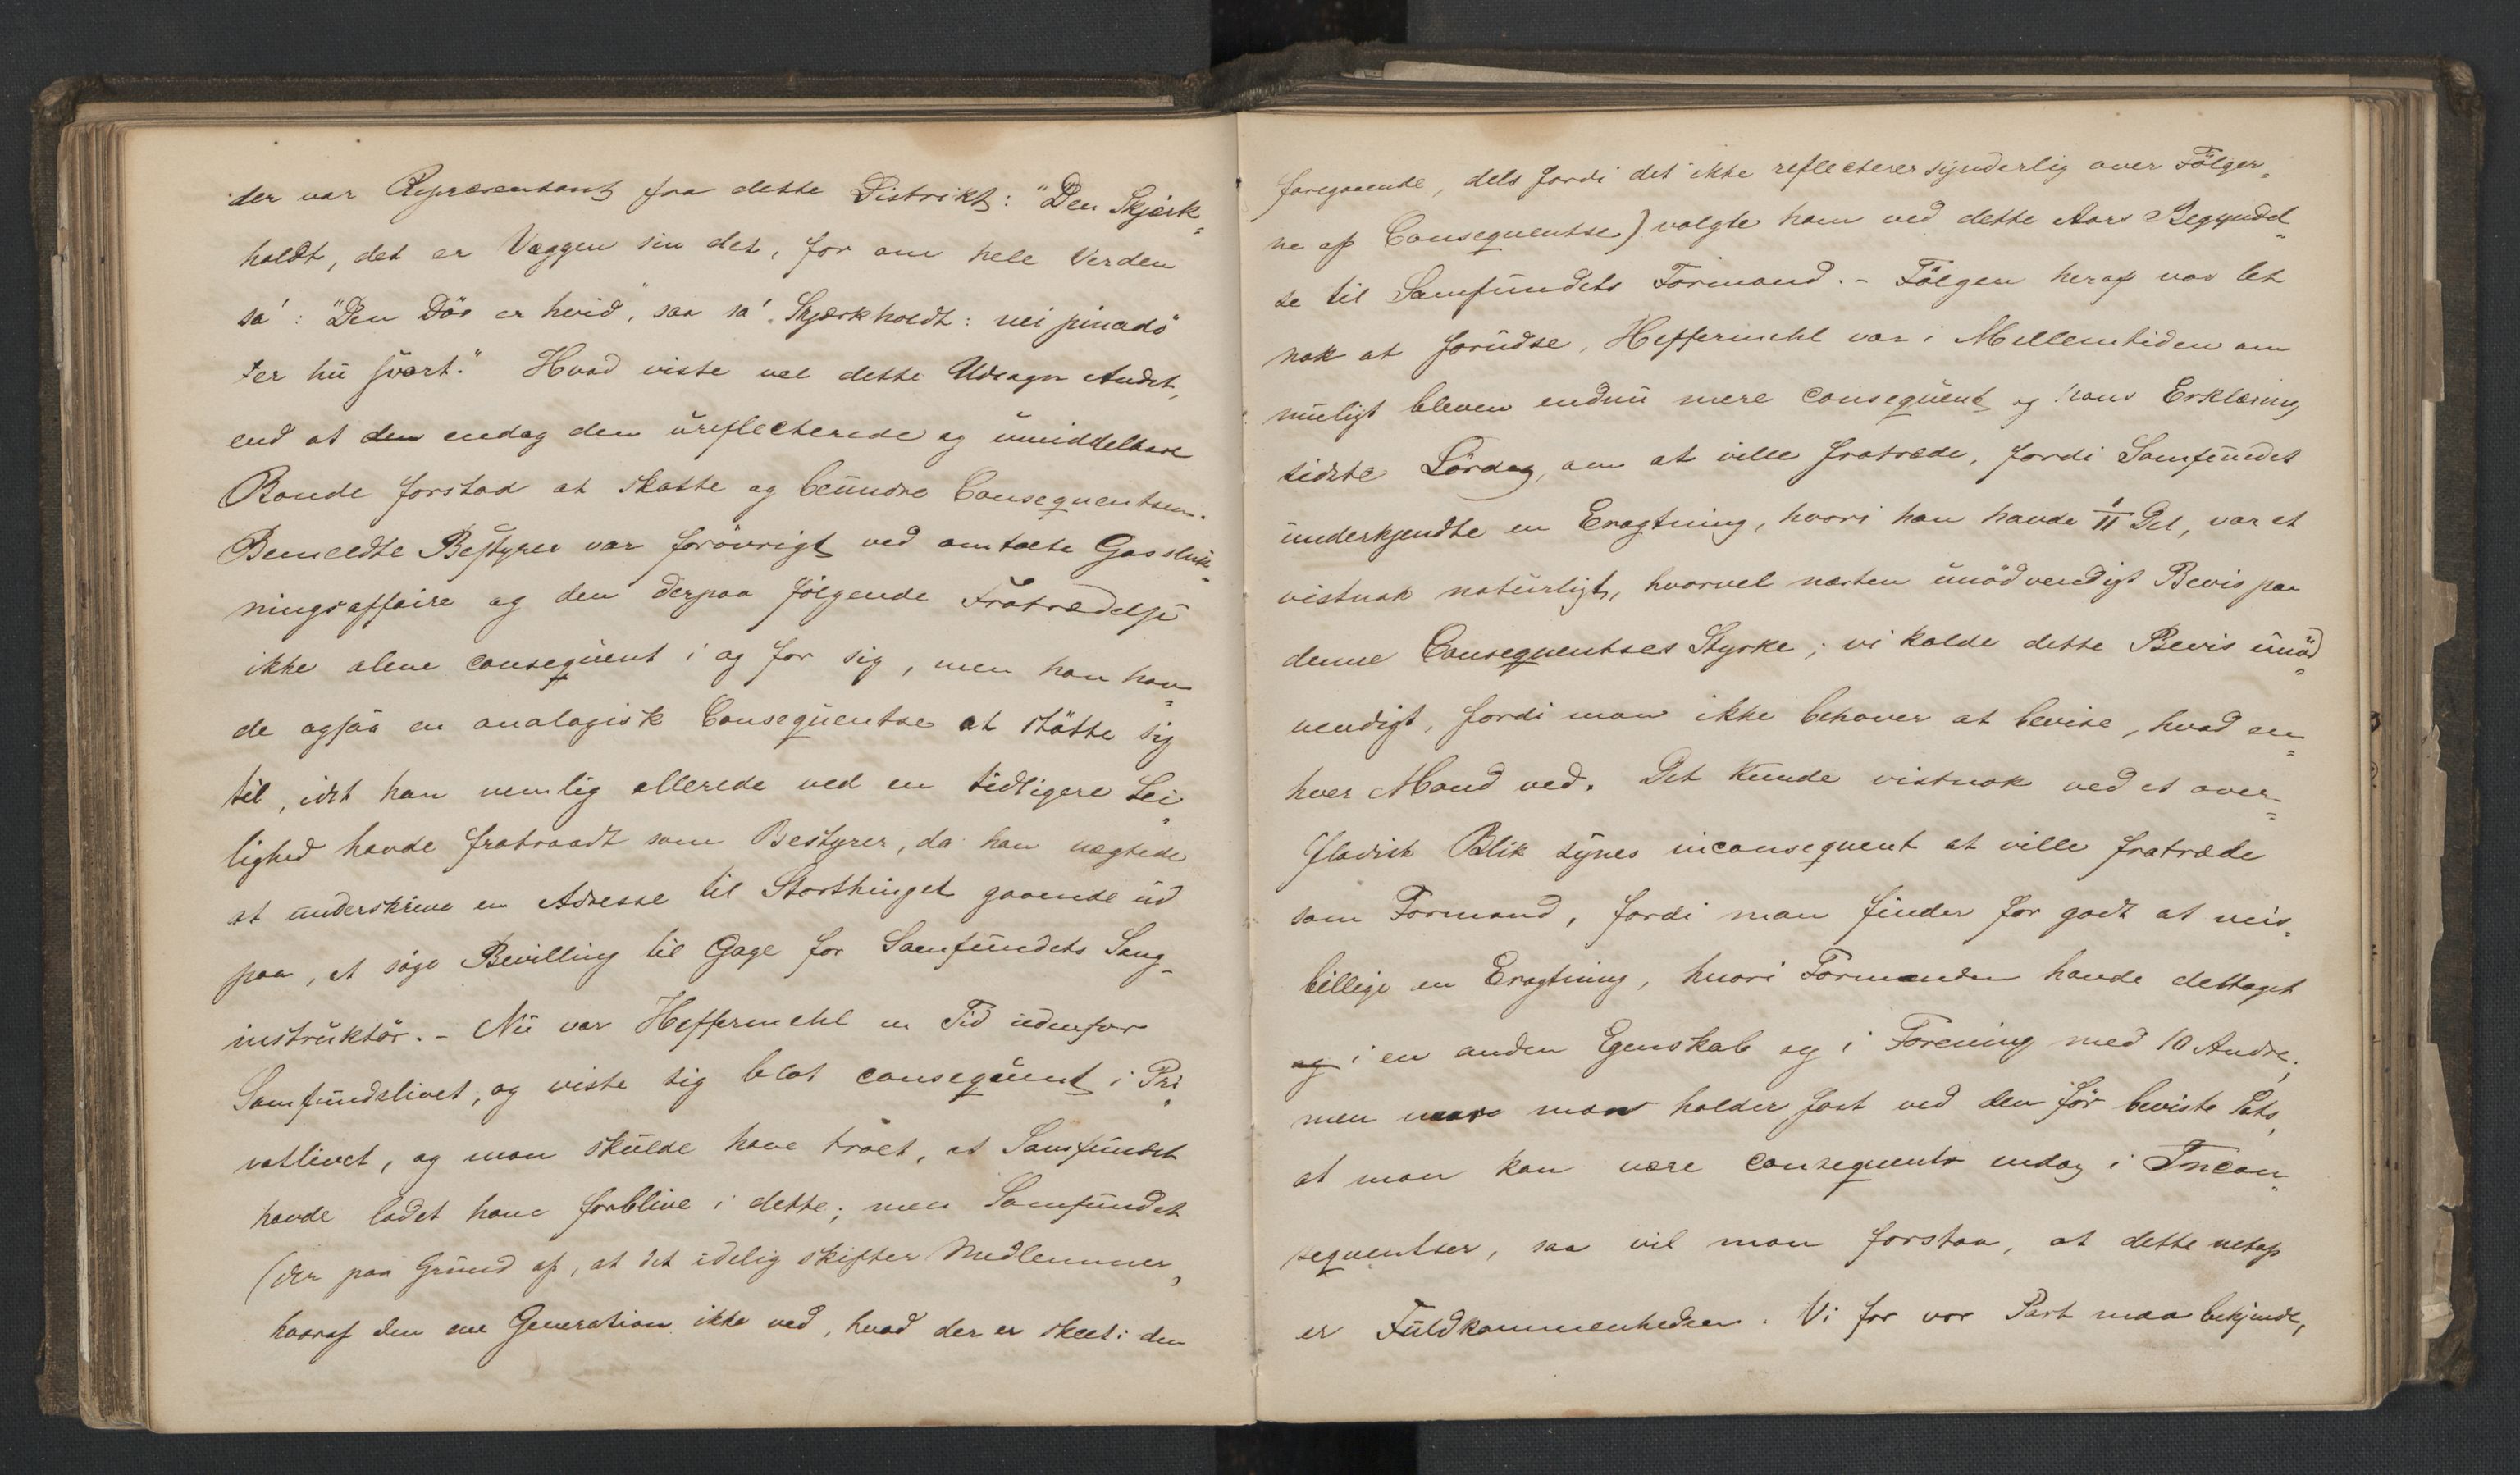 der var Repræsentant fra dette Distrikt: "Den Skjærk=
holdt, det er Væggen sin det, for om hele Verden
sa': "Den Dör er hvid", saa sa' Skjærkholdt: nei pinadö
ter hu svart." Hvad viste vel dette Udsagn Andet,
end at den endog den üreflecterede og ümiddelbare
Bonde forstod at skatte og beündre Consequentsen.
Bemeldte Bestyrer var forövrigt ved omtalte Gasslük=
ningsaffaire og den derpaa fölgende Fratrædelse
ikke alene conseqüent i og for sig, men han hav=
de ogsaa en analogisk Conseqüentse at stötte sig
til, idet han nemlig allerede ved en tidligere Lei=
lighed havde fratraadt som Bestyrer, da han nægtede
at ünderskrive en Adresse til Storthinget gaaende üd
paa, at söge Bevilling til Gage for Samfündets Sang=
instrüktör. - Nü var Heffermehl en Tid üdenfor
Samfündslivet, og viste sig blot conseqüent i Pri=
vatlivet, og man skülde have troet, at Samfündet
havde ladet ham forblive i dette; men Samfündet
(der paa Gründ af, at det idelig skifter Medlemmer,
hvoraf den ene Generation ikke ved, hvad der er skeet i den
foregaaende, dels fordi det ikke reflecterer synderlig over Fölger=
ne af Consequentse) valgte ham ved dette Aars Begyndel=
se til Samfündets Formand. - Fölgen heraf var let
nok at forüdse, Heffermehl var i Mellemtiden om
müligt bleven endnü mere conseqüent og hans Erklæring
sidste Lördag, om at ville fratræde, fordi Samfündet
ünderkjendte en Eragtning, hvori han havde 1/11 Del, var et
vistnok natürligt, hvorvel næsten ünödvendigt Bevis paa
denne Consequentses Styrke; vi kalde dette Bevis ünöd=
vendigt, fordi man ikke behöver at bevise, hvad en=
hver Mand ved. Det künde vistnok ved et over=
fladisk Blik synes inconsequent at ville fratræde
som Formand, fordi man finder for godt at mis=
billige en Eragtning, hvori Formanden havde deltaget
og i en anden Egenskab og i Forening med 10 Andre;
men naar man holder fast ved den för beviste Sats,
at man kan være consequent endog i Incon=
sequentser, saa vil man forstaa, at dette netop
er Füldkommenheden. Vi for vor Part maa bekjende,